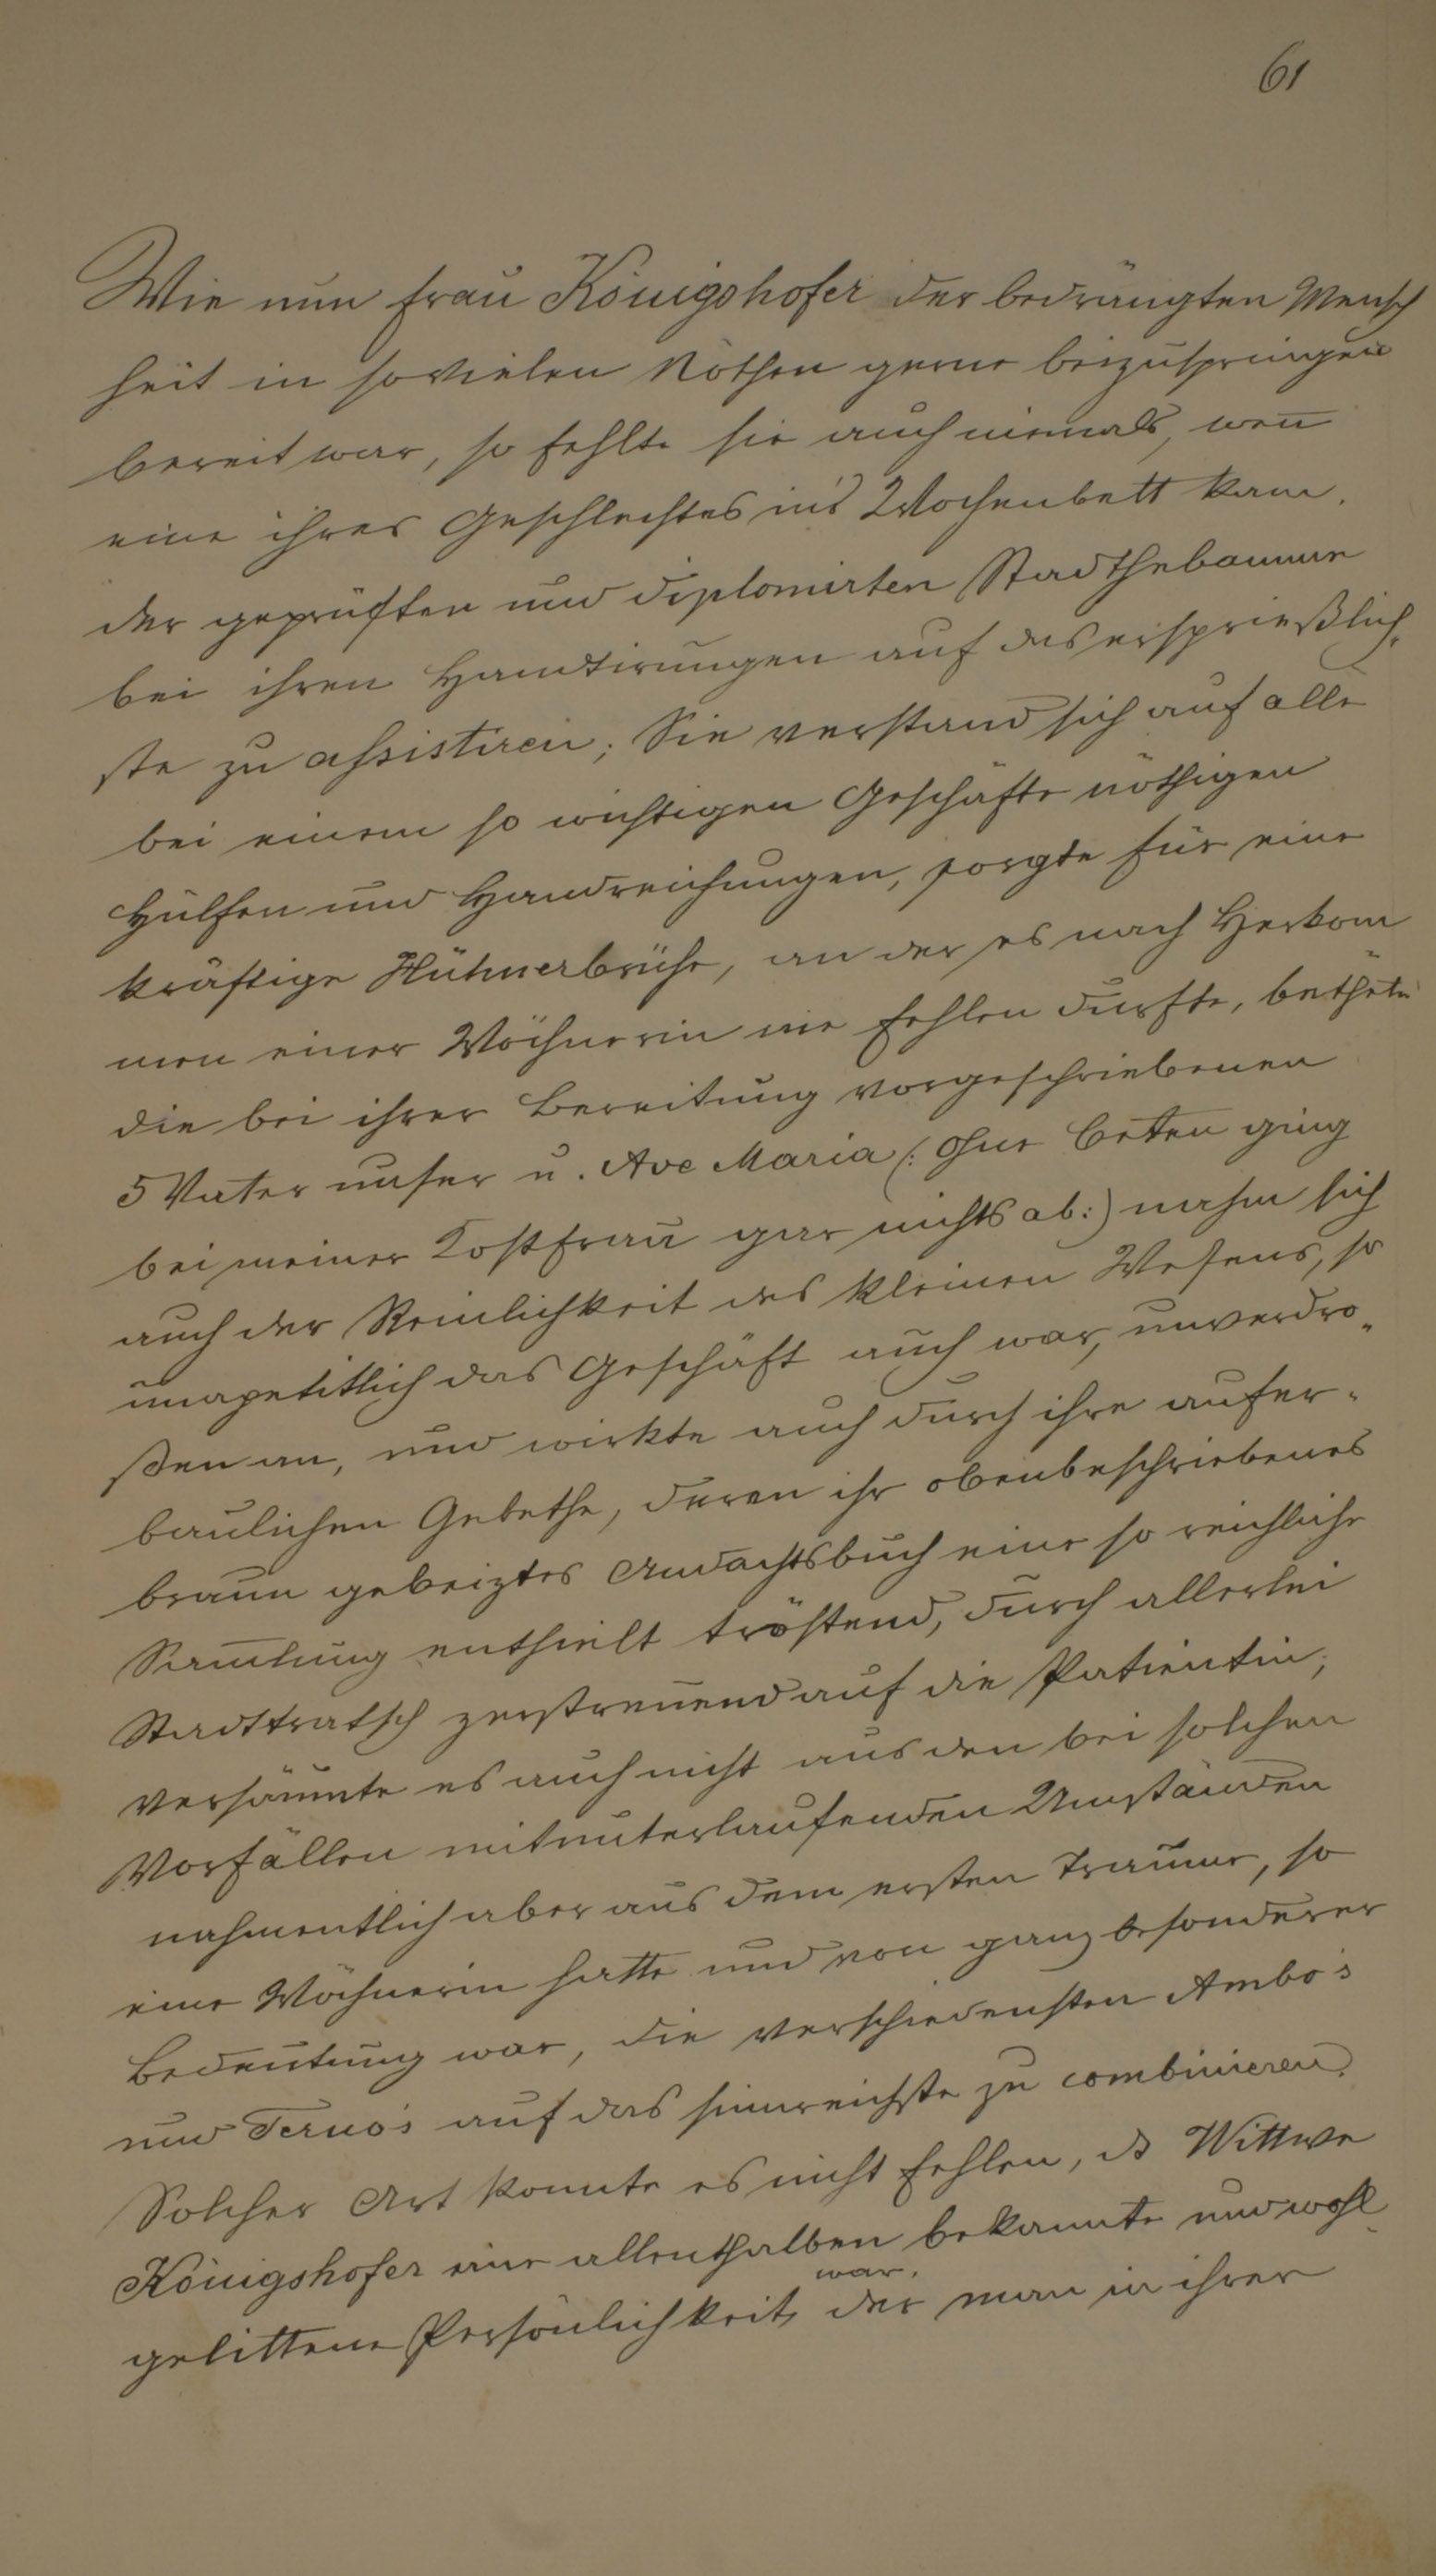 61
Wie nun Frau Königshofer der bedrängten Mensch
heit in sovielen Nöthen gerne beizuspringen
bereit war, so fehlte sie auch niemals, weñ
eine ihres Geschlechtes in's Wochenbett kam.
der geprüften und diplomirten Stadthebamme
bei ihren Handtirungen auf das ersprießlich-
ste zu assistiren; Sie verstand sich auf alle
bei einem so wichtigen Geschäfte nöthigen
Hülfen und Handreichungen, sorgte für eine
kräftige Hühnerbrühe, an der es nach Herkom
men einer Wöchnerin nie fehlen durfte, bethete
die bei ihrer Bereitung vorgeschriebenen
5 Vater unser u. Ave Maria (: Ohne beten ging
bei meiner Kostfrau gar nichts ab:) nahm sich
auch der Reinlichkeit des kleinen Wesens, so
unapetitlich das Geschäft auch war, unverdro-
ßen an, und wirkte auch durch ihre aufer-
baulichen Gebethe, deren ihr obenbeschriebenes
braun gebeiztes Andachtsbuch eine so reichliche
Sam̃lung enthielt tröstend, durch allerlei
Stadttratsch zerstreuend auf die Patientin,
versäumte es auch nicht aus den bei solchen
Vorfällen mitunterlaufenden Umständen
nahmentlich aber aus dem ersten Traume, so
eine Wöchnerin hatte und von ganz besonderer
Bedeutung war, die verschiedensten Ambo's
und Terno's auf das sinnreichste zu combinieren.
Solcher Art konnte es nicht fehlen, ds Wittwe
Königshofer eine allenthalben bekannte und wohl
gelittene Persönlichkeit war, der man in ihrer